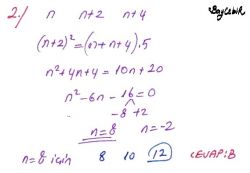 2./ n n+2 n+4
(n+2)² = (n+n+4).5
n²+4n+4 = 10n+20
n²-6n-16=0
-8 +2
n=8 n=-2
n=8 için 8 10 12 CEVAP:B